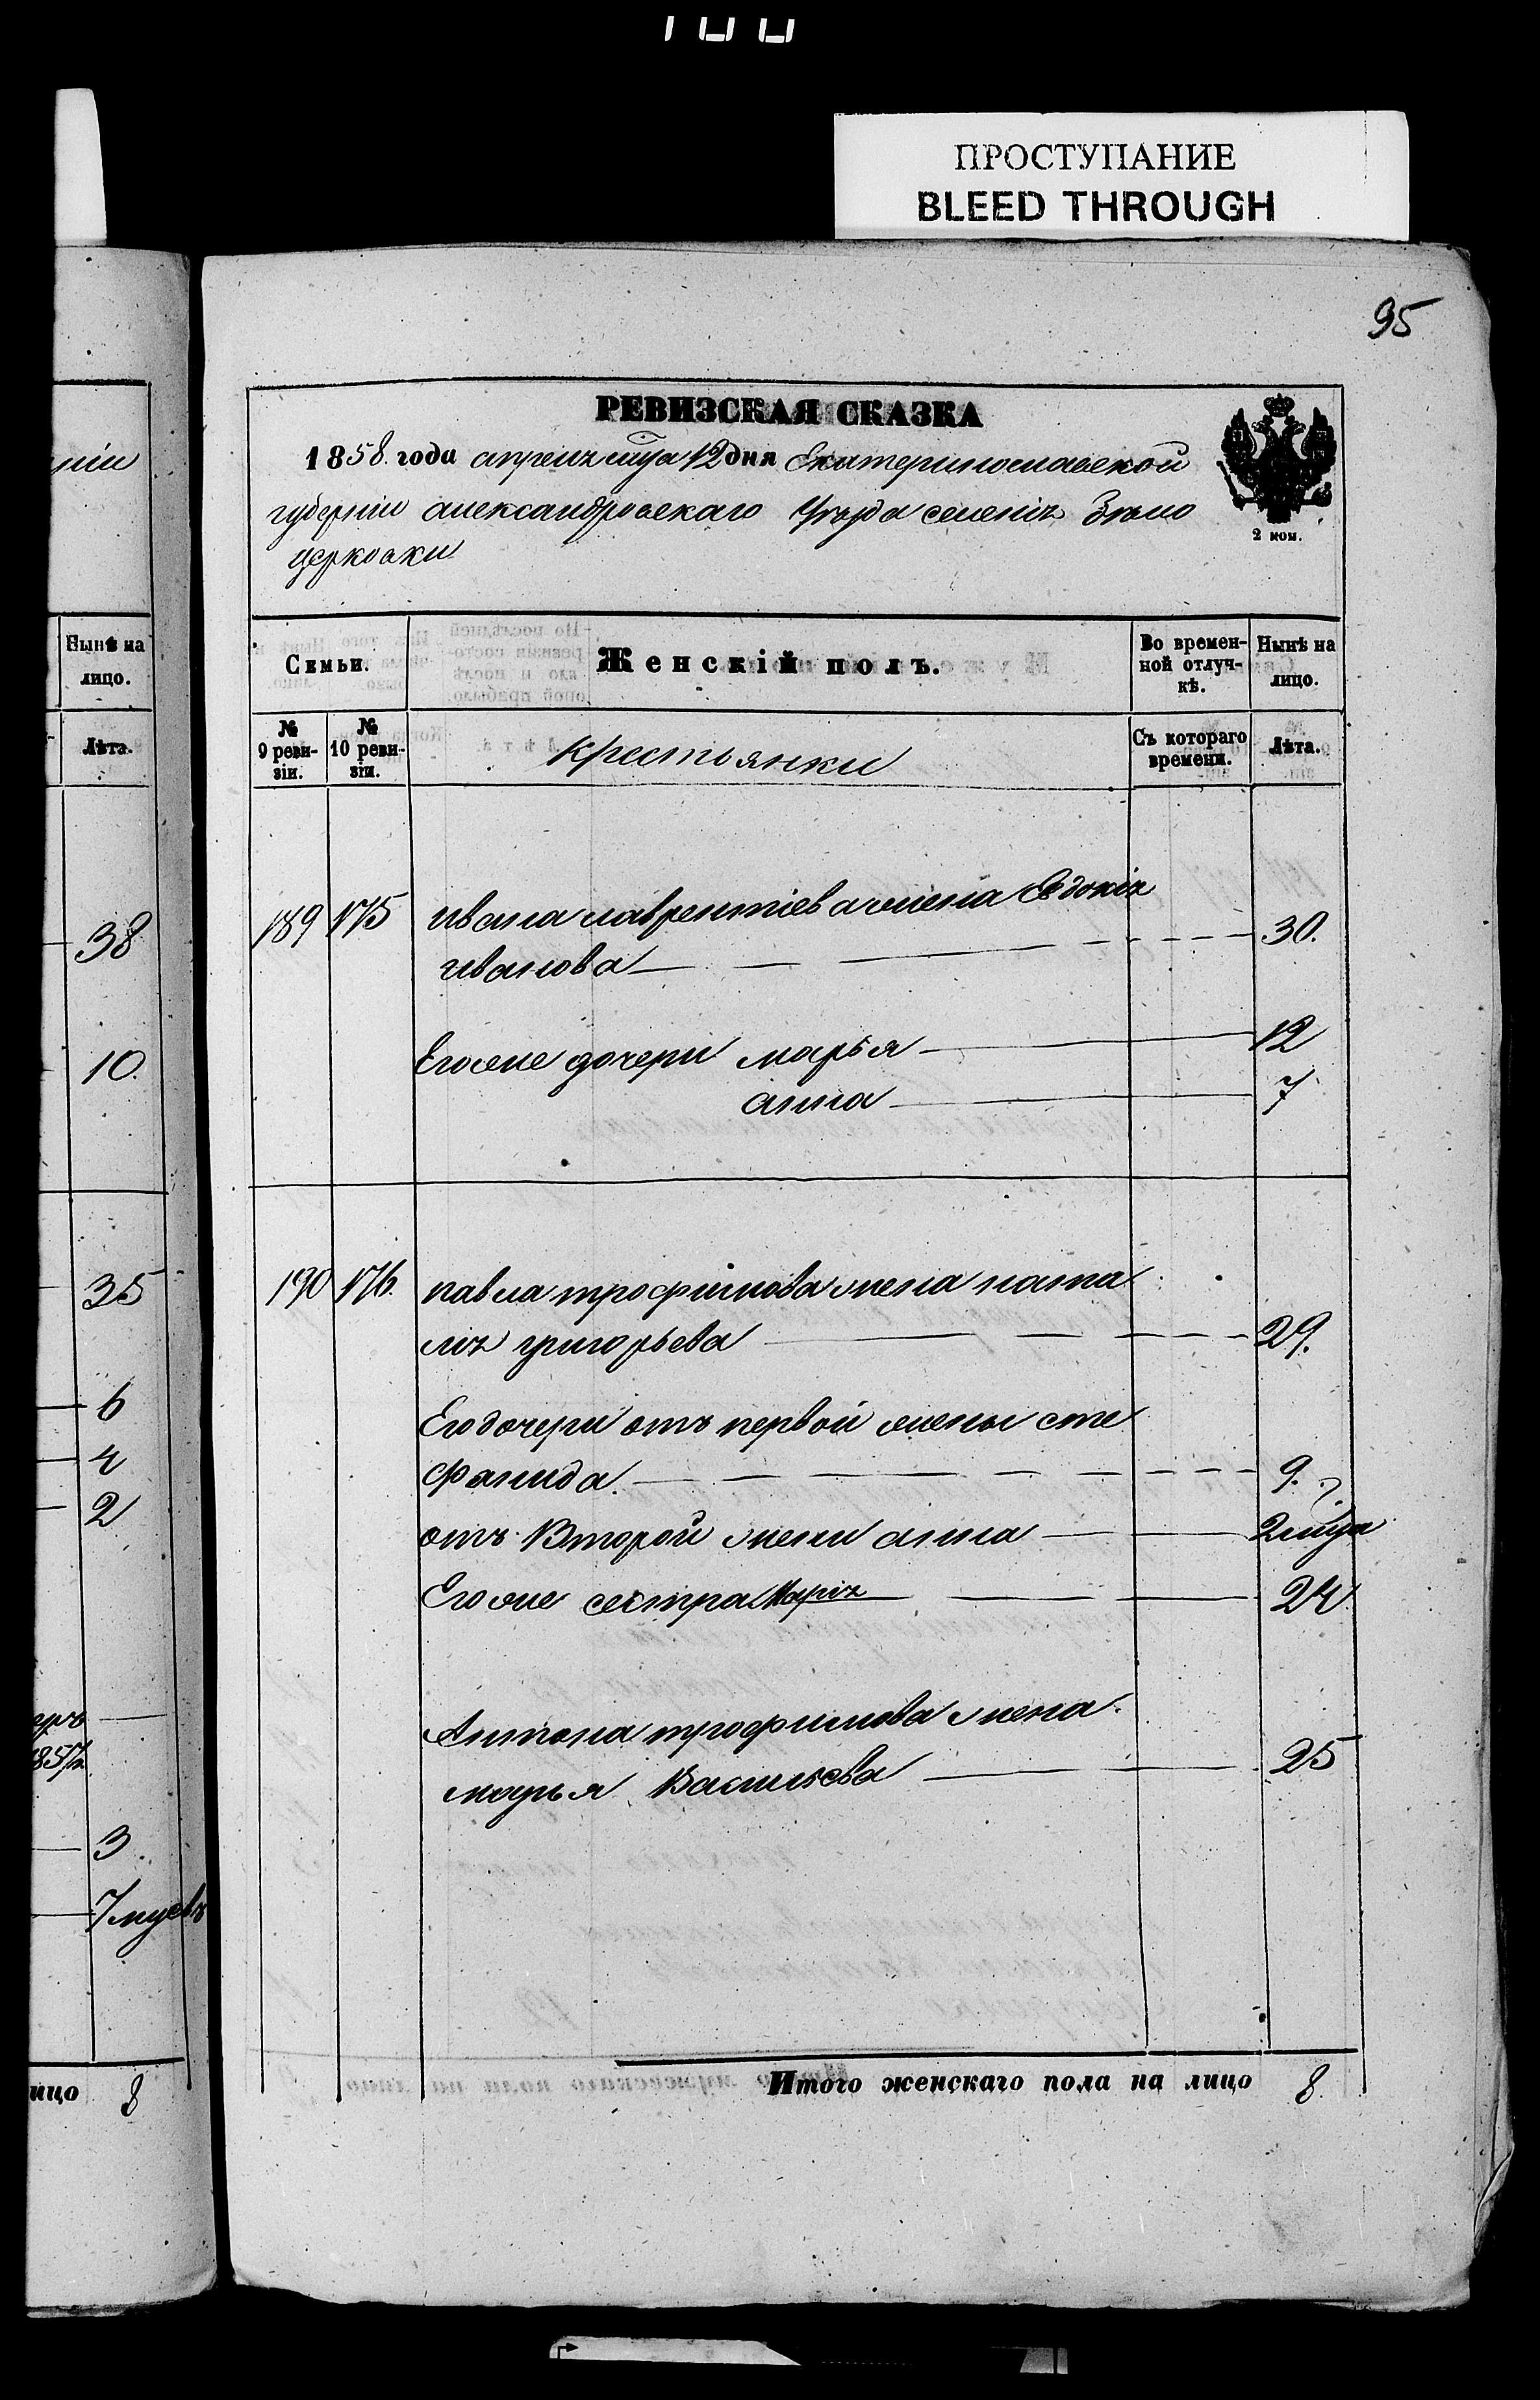 ПРОСТУПАНИЕ
BLEED THROUGH
95
РЕВИЗСКАЯ СКАЗКА
1858. года апреля мца 12 дня Екатеринославской
губерніи александровскаго Уезда селенія Бѣло
церковки
2 коп.
Семьи. Женскій полъ. Во времен-ной отлуч-кѣ. Нынѣ на лицо.
№ 9 реви-зіи. № 10 реви-зіи. Крестьянки Съ котораго времени. Лѣта.
189 175 Ивана лаврентіева жена Евдокія
иванова 30.
Егоже дочери марья 12
анна 7
190 176. павла трофимова жена ната
лія григорьева 29.
Его дочери отъ первой жены сте
фанида. 9.
отъ Второй жени анна 2 мца
Егоже сестра Марія 24
Антона трофимова жена
марья Васильева 25
Итого женскаго пола на лицо 8.
ніи
Нынѣ на
лицо.
Лѣта.
38
10.
35
6
4
2
3.
7 мцевъ
лицо 8